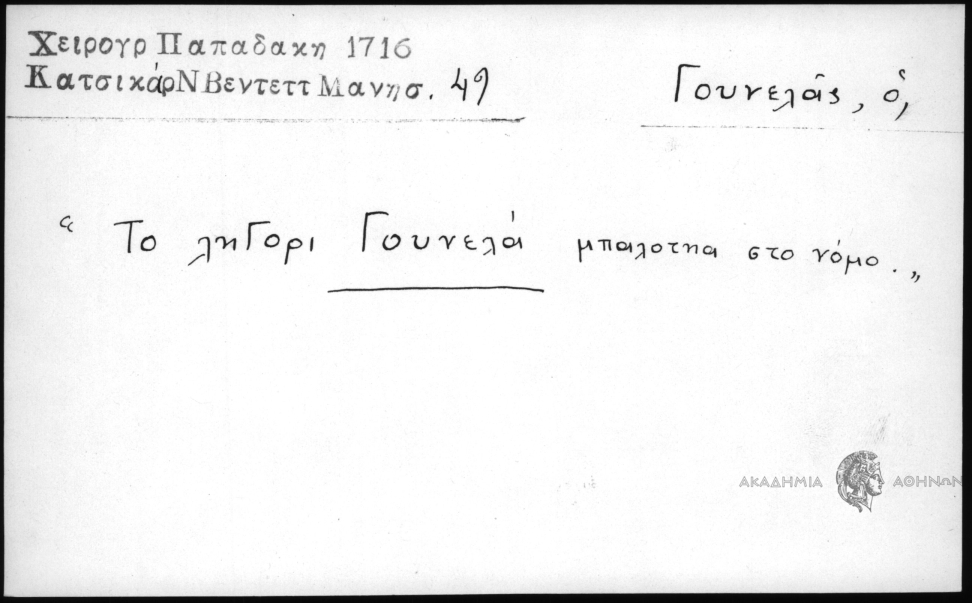 Χειρογρ Παπαδακη 1716
Κατσικάρ Ν Βεντεττ Μανησ. 49
Γουνελᾶς, ὁ,
“ Το ληγορι Γουνελά μπαλοτηα στο νόμο. „
ΑΚΑΔΗΜΙΑ ΑΘΗΝΩΝ